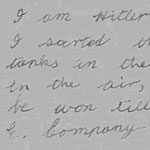 I am Hitler
I sarted th
tanks in the
in the air,
be won till
E. Company